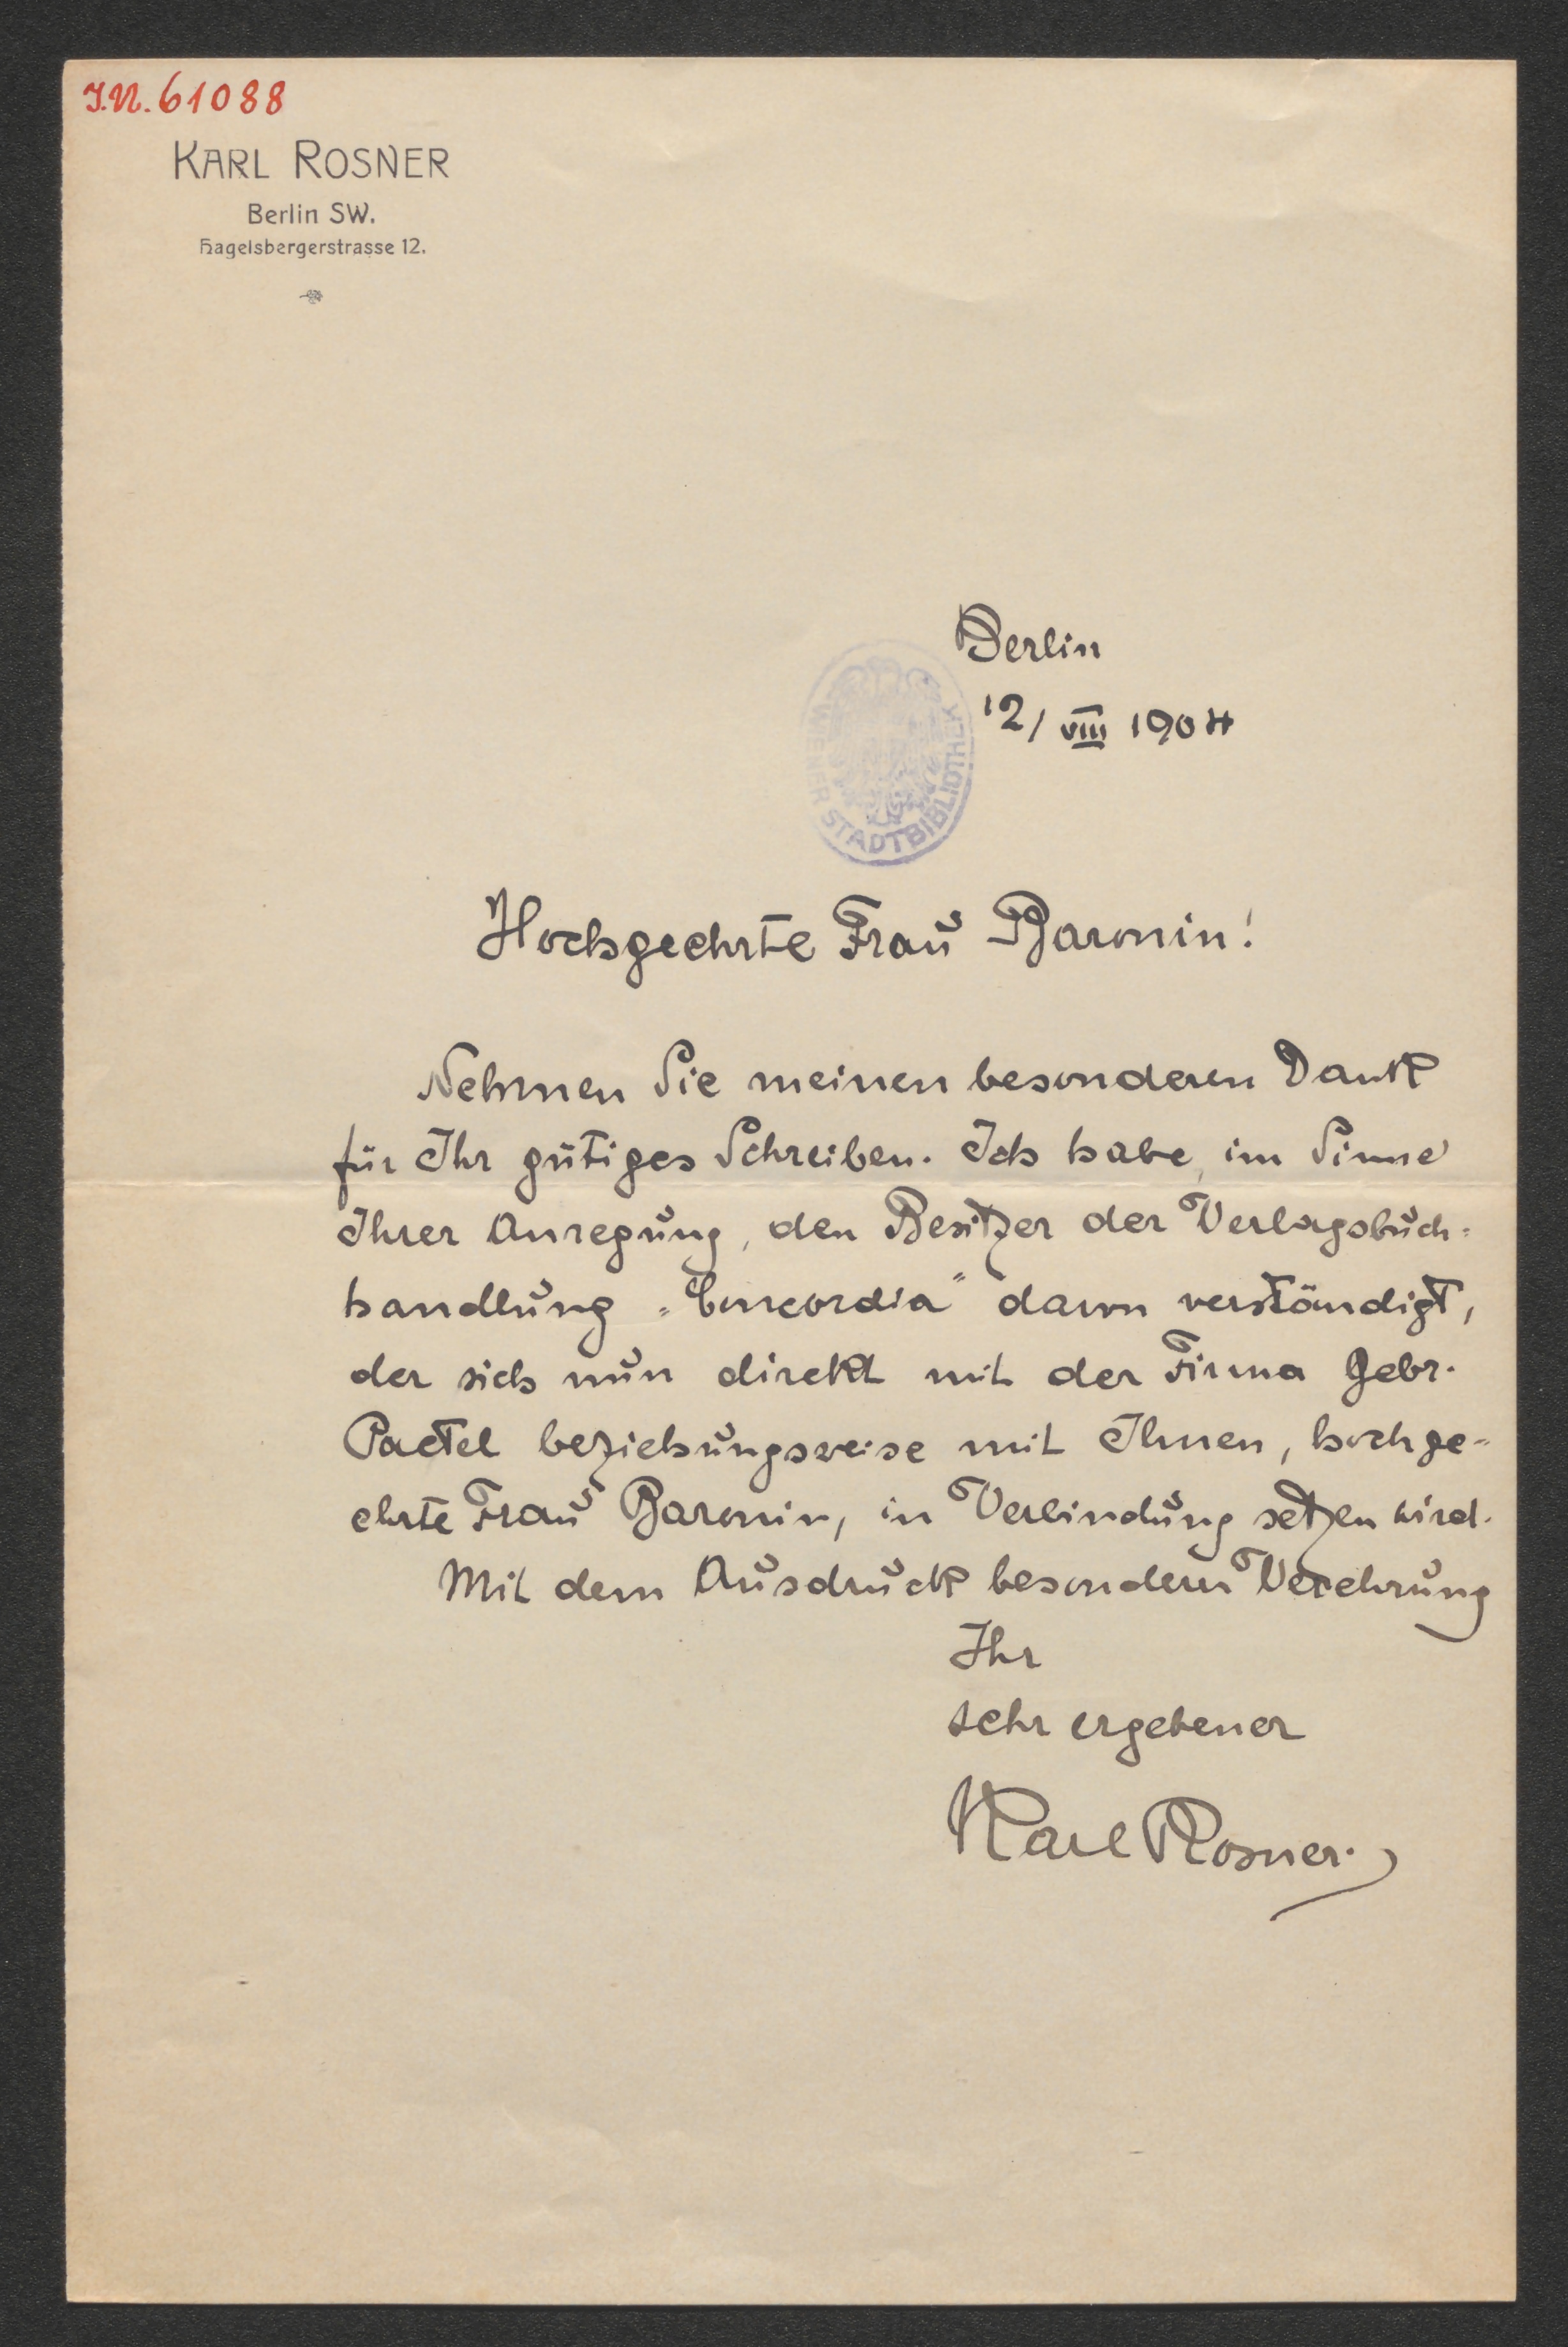 J.N. 61088
KARL ROSNER
Berlin SW.
Hagelsbergerstrasse 12.
Berlin
12/ VIII 1904
WIENER STADTBIBLIOTHEK
Hochgeehrte Frau Baronin!
Nehmen Sie meinen besonderen Dank
für Ihr gütiges Schreiben. Ich habe, im Sinne
Ihrer Anregung, den Besitzer der Verlagsbuch-
handlung „Concordia" davon verständigt,
der sich nun direkt mit der Firma Gebr.
Paetel beziehungsweise mit Ihnen, hochge-
ehrte Frau Baronin, in Verbindung setzen wird.
Mit dem Ausdruck besonderer Verehrung
Ihr
sehr ergebener
Karl Rosner.